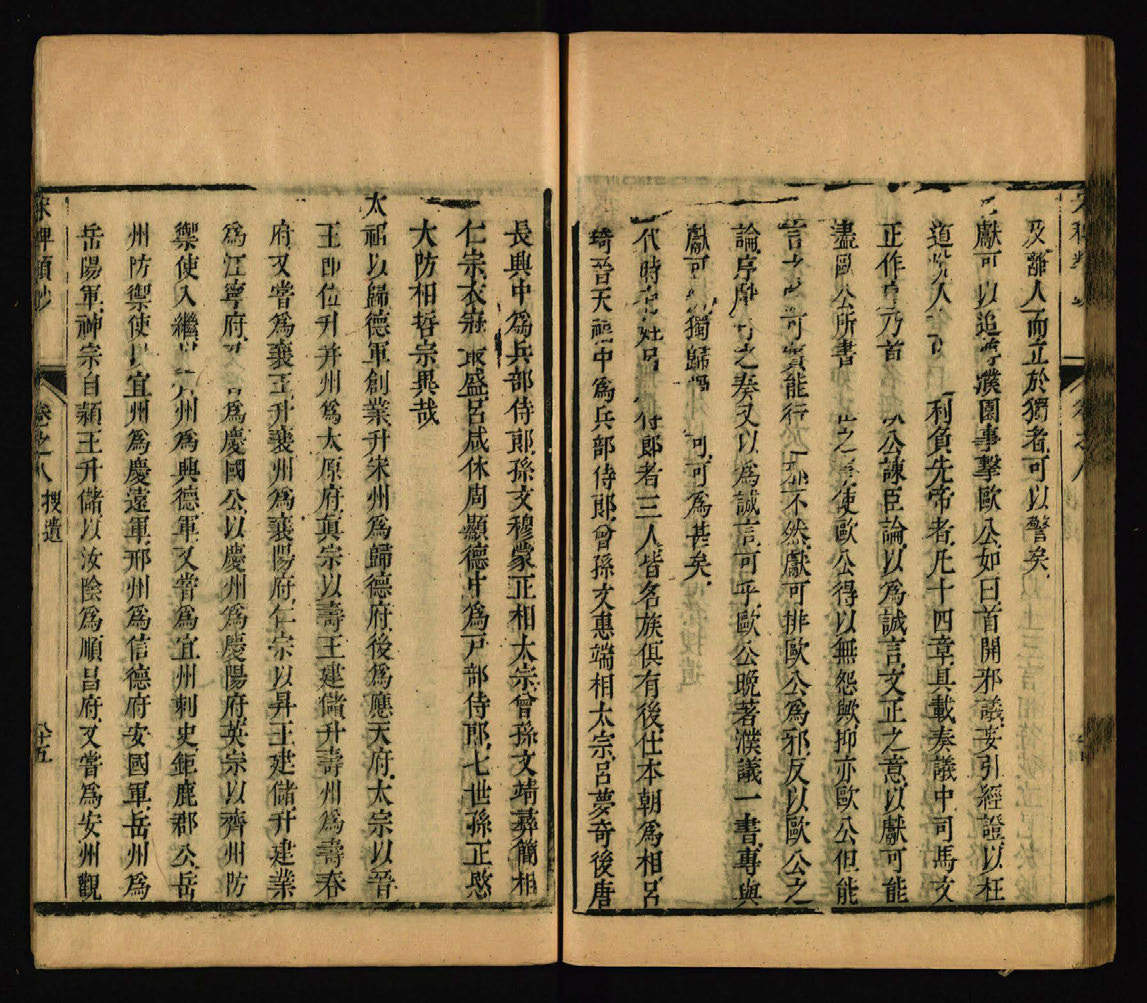 及離人而立於獨者可以警矣
獻可以追濮園事擊歐公如曰首開邪議妄引經證以枉
道人利負先帝者凡十四章具載奏議中司馬文
正作序乃首公諫臣論以為誠言文正之意以獻可能
盡歐公所書使歐公得以無怨歟抑亦歐公但能
言之可實能行不然獻可排歐公為邪反以歐公之
論序之奏又以為誠言可乎歐公晚著濮議一書專與
獻可獨歸可為甚矣
代時呂侍郎者三人皆名族俱有後仕本朝為相呂
琦晉天福中為兵部侍郎曾孫文惠端相太宗呂夢奇後唐
長興中為兵部侍郎孫文穆蒙正相太宗曾孫文靖彝簡相
仁宗衣冠最盛呂咸休周顯德中為戶部侍郎七世孫正愍
大防相哲宗異哉
太祖以歸德軍創業升宋州為歸德府後為應天府太宗以晉
王即位升并州為太原府真宗以壽王建儲升壽州為壽春
府又嘗為襄王升襄州為襄陽府仁宗以昇王建儲升建業
為江寧府為慶國公以慶州為慶陽府英宗以齊州防
禦使入繼州為興德軍又嘗為宜州刺史鉅鹿郡公岳
州防禦使以宜州為慶遠軍邢州為信德府安國軍岳州為
岳陽軍神宗自潁王升儲以汝陰為順昌府又嘗為安州觀
宋稗類鈔 卷之八 搜遺 五